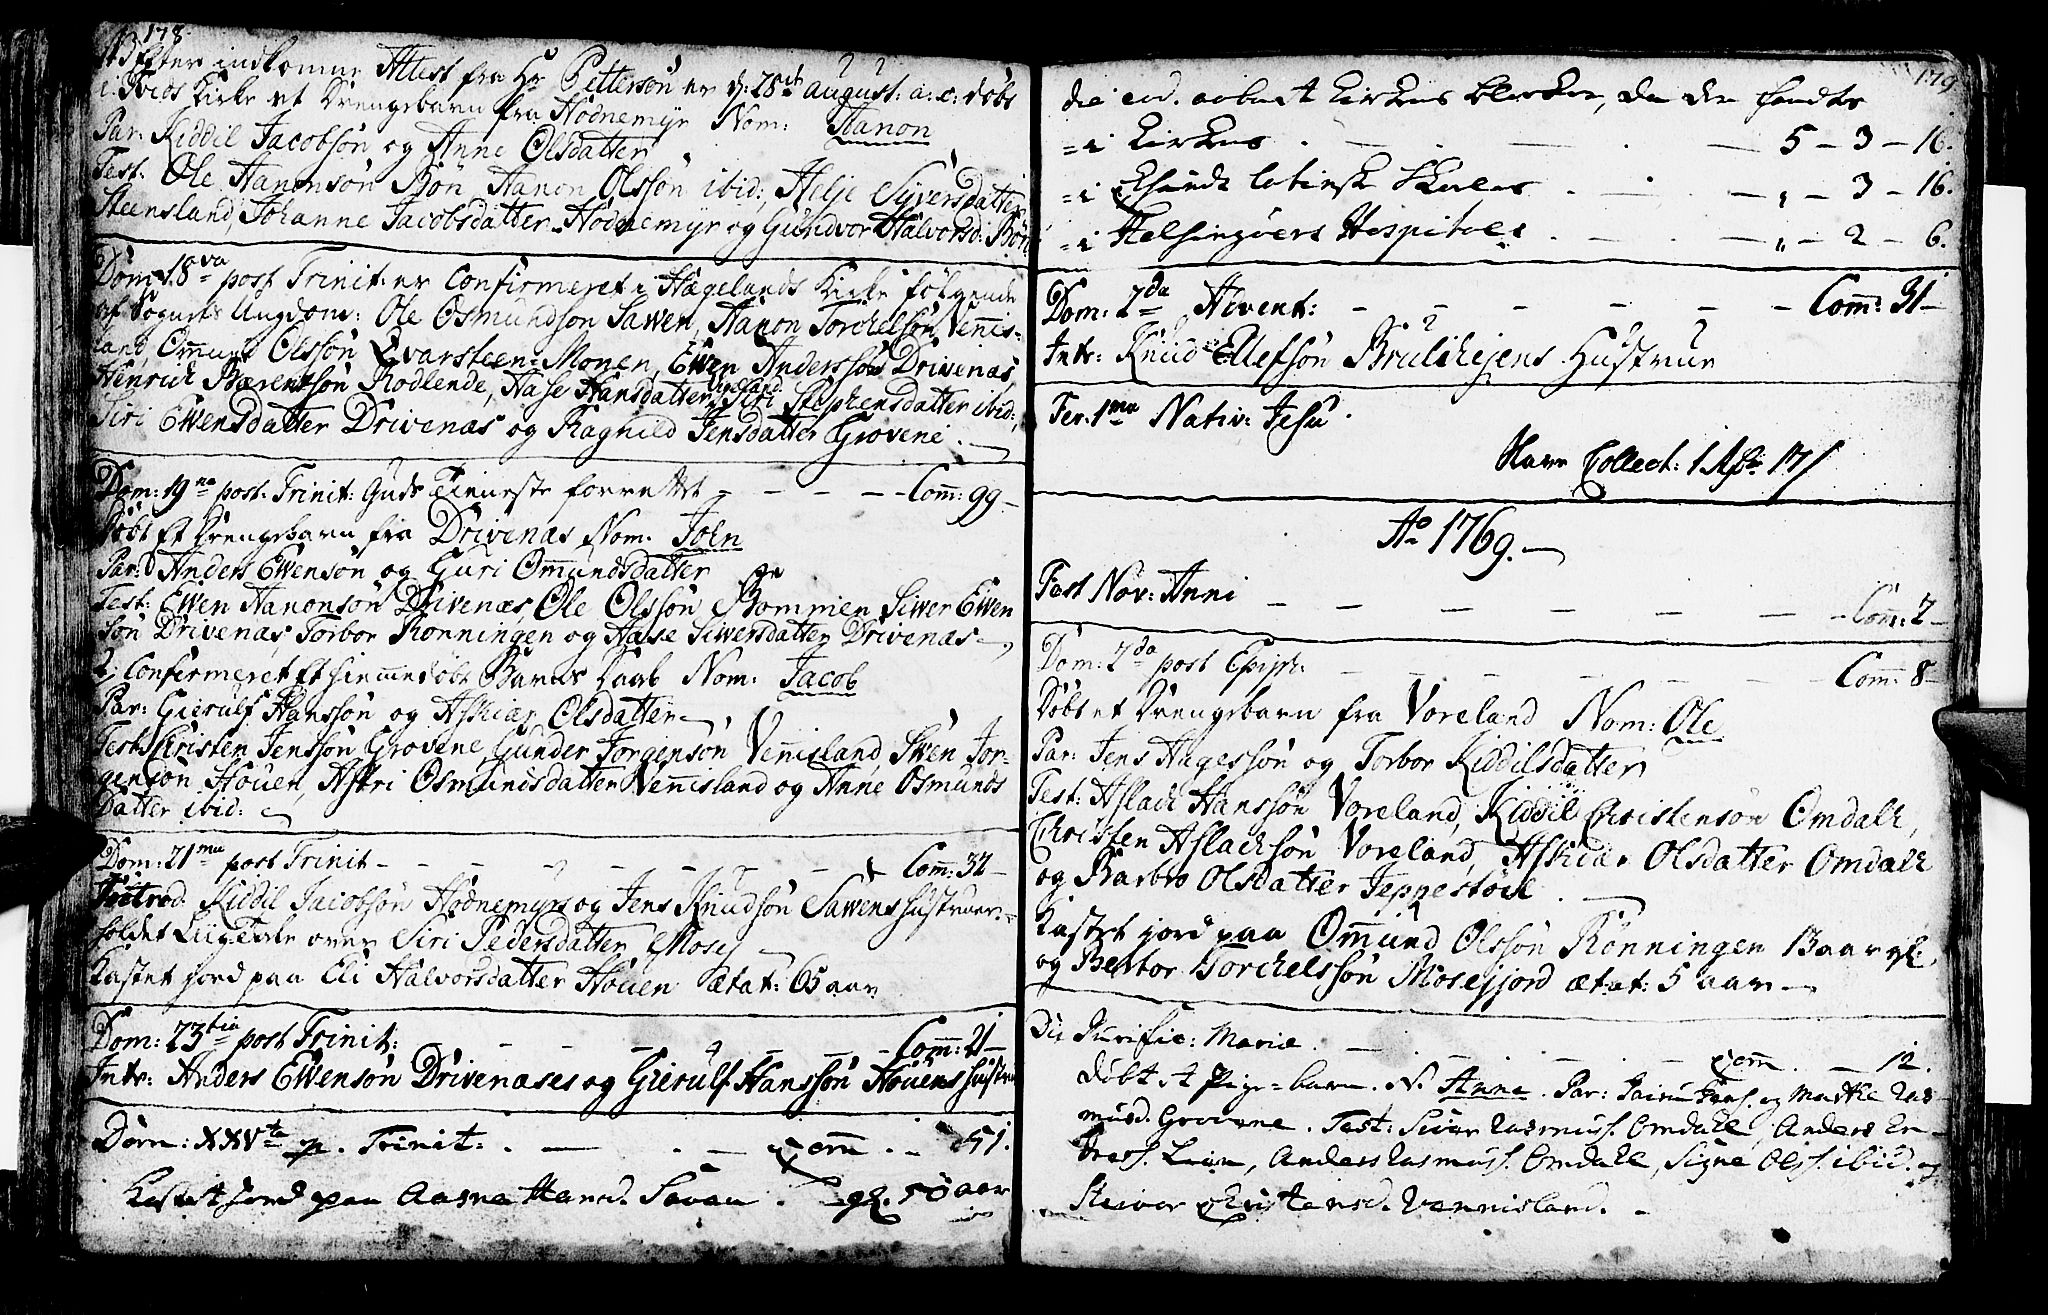 178.
Efter indkomne Attest fra Hr Petterson er d: 28de August: a: c: döbt
i Iveds Kirke et Drengebarn fra Hödnemyr Nom: Hanon
Par: Kiddil Jacobsön og Anne Olsdatter
Test: Ole Hanonsön Bön, Hanon Olssön ibid:, Helje Syversdatter
Steensland, Johanne Jacobsdatter Hödnemyr og Gundvor Halvorsd: Bön
Dom: 18va post Trinit: er Confirmeret i Hægelands Kirke fölgende
af Sognets Ungdom: Ole Osmundson Sawen, Hanon Torchelsön Vennis-
land, Omund Olssön Qvarsteen-Monen, Ewen Anderssön Drivenæs
Henrich Bærentsön Rodlende, Aase Hansdatter Vigeland, Siri Stephensdatter ibid:,
Siri Ewensdatter Drivenæs og Ragnild Jensdatter Grovene.
Dom: 19na post. Trinit: Guds Tieneste forrettet - - - - Com: 99
Döbt Et Drengebarn fra Drivenæs Nom. John
Par: Anders Ewensön og Guri Omundsdatter
Test: Ewen Hanonsön Drivenæs, Ole Olssön Bommen, Siwer Ewen
sön Drivenæs, Torbor Rönningen og Aase Siwersdatter Drivenæs
2, Confirmeret Et hiemmedöbt Barns Daab Nom: Jacob
Par: Gierulf Hanssön og Askier Olsdatter
Test: Christen Jenssön Grovene, Gunder Jorgensön Vennisland, Swen Jor-
gensön Houen, Astri Osmundsdatter Vennisland og Anne Osmunds
datter ibid:
Dom: 21ma post Trinit - - - - - - Com: 32
Introd. Kiddil Jacobsön Hödnemyrs og Jens Knudsön Sawens Hustruer
holdet Liigtale over Siri Pedersdatter Mosej
Kastet jord paa Eli Halvorsdatter Houen ætat: 65 aar
Dom: 23tia post Trinit: - - - - - Com: 21
Intr: Anders Ewensön Drivenæses og Gierulf Hanssön Houens Hustru
Dom: XXVta p. Trinit: . - . - Com . - 51.
Kastet jord paa Aasne Hansd. Savan. gl. 50 aar
179
die eod. aabnet Kirkens blocker, da der fandtes
= i Kirkens . - . - . - 5 - 3 - 16.
= i latinske Skoles . - . - „ - 3 - 16.
= i Helsingöers Hospitals . - . - „ - 2 - 6.
Dom: 2da Advent: - - - - - - Com: 31
Intr: Knud Ellefsön Brulihejens Hustrue
Fer: 1ma Nativ: Jesu.
Collect: 1
Ao 1769.
Fest Nov: Anni - - - - - - Com: 2
Dom: 2da post Epiph: - - - - - - Com: 8
Döbt et Drengebarn fra Voreland Nom: Ole
Par: Jens Aagessön og Torbor Kiddilsdatter
Test: Aslach Hanssön Voreland, Kiddil Christensön Omdall,
Christen Aslachsön Voreland, Askier Olsdatter Omdall
og Barbro Olsdatter Jeppestöel.
Kastet jord paa Omund Olssön Rönningen 13 aar gl:
og Berbor Torchelssön Mosefjord ætat: 5 aar
Die Purific: Mariæ . - . - . - Com. - 12.
döbt et Pige-barn. N. Anne. Par: Hans. og Marthe Ras-
musd. Grovene. Test: Siver Rasmuss. Omdahl, Anders En-
dress. Lien, Anders Rasmuss. Omdahl, Signe Olss. ibid. og
Christensd. Vennisland.